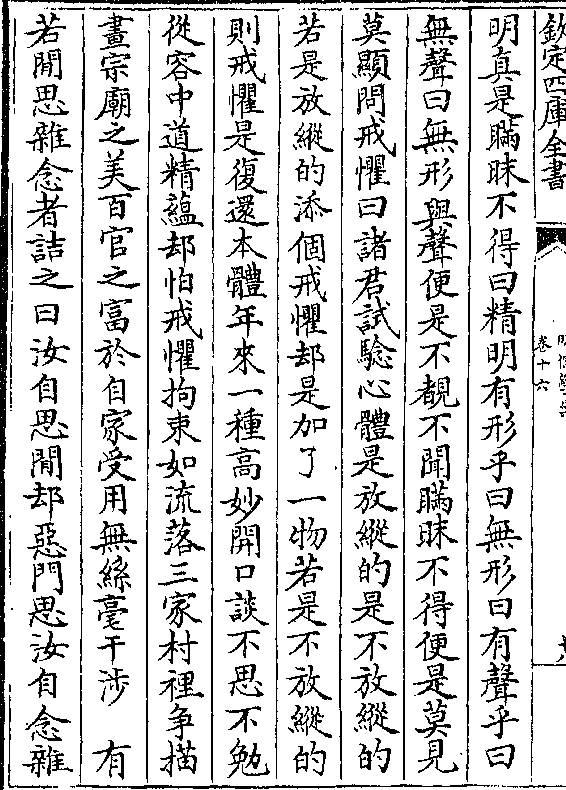 欽定四庫全書
卷十六
明真是瞞昧不得曰精明有形乎曰無形曰有聲乎曰
無聲曰無形與聲便是不覩不聞瞞昧不得便是莫見
莫顯問戒懼曰諸君試驗心體是放縱的是不放縱的
若是放縱的添個戒懼却是加了一物若是不放縱的
則戒懼是復還本體年來一種高妙開口談不思不勉
從容中道精蘊却怕戒懼拘束如流落三家村裡爭描
畫宗廟之美百官之富於自家受用無絲毫干涉　有
若閒思雜念者詰之曰汝自思閒却惡閒思汝自念雜